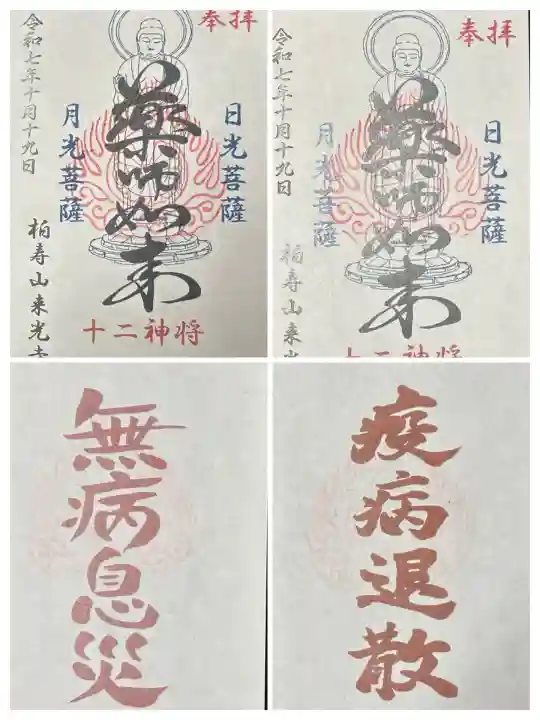 奉拝
日光菩薩
薬師如来
月光菩薩
令和七年十月十九日
柏寿山来光寺
十二神将
奉拝
日光菩薩
薬師如来
月光菩薩
令和七年十月十九日
柏寿山来光
十二神将
無病息災
疫病退散